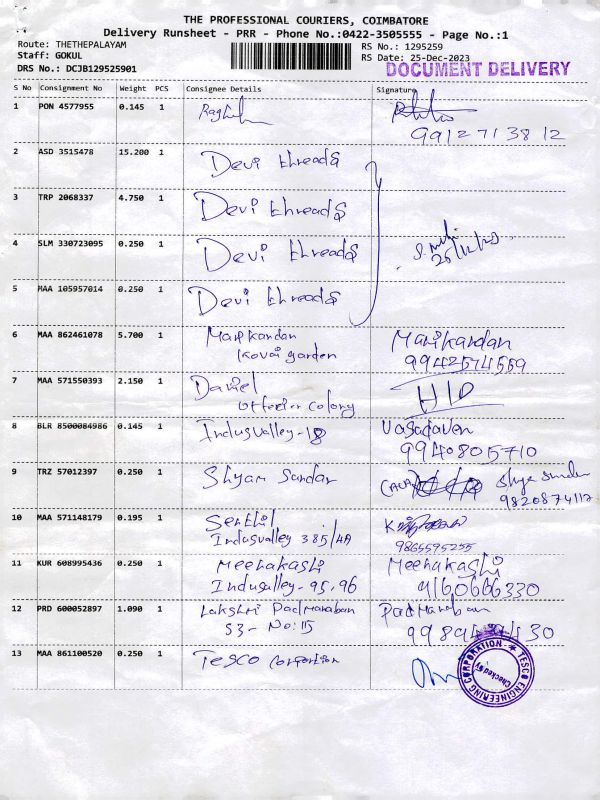 THE PROFESSIONAL COURIERS, COIMBATORE
Delivery Runsheet - PRR - Phone No.:0422-3505555 - Page No.:1
Route: THETHEPALAYAM RS No.: 1295259
Staff: GOKUL RS Date: 25-Dec-2023
DRS No.: DCJB129525901 DOCUMENT DELIVERY
S No Consignment No Weight PCS Consignee Details Signature
1 PON 4577955 0.145 1
99127138 12
2 ASD 3515478 15.200 1 Devi threads
3 TRP 2068337 4.750 1 Devi threads
4 SLM 330723095 0.250 1 Devi threads
25/12/23
5 MAA 105957014 0.250 1 Devi threads
6 MAA 862461078 5.700 1 Manikandan Manikandan
Kovai garden 9942574559
7 MAA 571550393 2.150 1 Daniel H/D
colony
8 BLR 8500084986 0.145 1 Indusvalley-18
9940805710
9 TRZ 57012397 0.250 1 Shyam Sundar
10 MAA 571148179 0.195 1 Senthil
Indusvalley 385/4A 9865595255
11 KUR 608995436 0.250 1 Meenakashi Meenakashi
Indusvalley-95,96 9160666330
12 PRD 600052897 1.090 1 Lakshmi Padmanaban Padmanaban
53- No:15
13 MAA 861100520 0.250 1 Tesco Corportion
TESCO ENGINEERING CORPORATION
Checked By